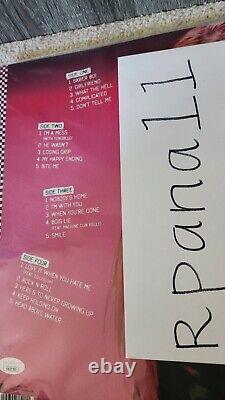 SIDE ONE
1. SK8ER BOI
2. GIRLFRIEND
3. WHAT THE HELL
4. COMPLICATED
5. DON'T TELL ME
SIDE TWO
1. I'M A MESS
(WITH YUNGBLUD)
2. HE WASN'T
3. LOSING GRIP
4. MY HAPPY ENDING
5. BITE ME
SIDE THREE
1. NOBODY'S HOME
2. I'M WITH YOU
3. WHEN YOU'RE GONE
4. BOIS LIE
(FEAT. MACHINE GUN KELLY)
5. SMILE
SIDE FOUR
1. LOVE IT WHEN YOU HATE ME
(FEAT. BLACKBEAR)
2. ROCK N ROLL
3. HERE'S TO NEVER GROWING UP
4. KEEP HOLDING ON
5. HEAD ABOVE WATER
rpana11